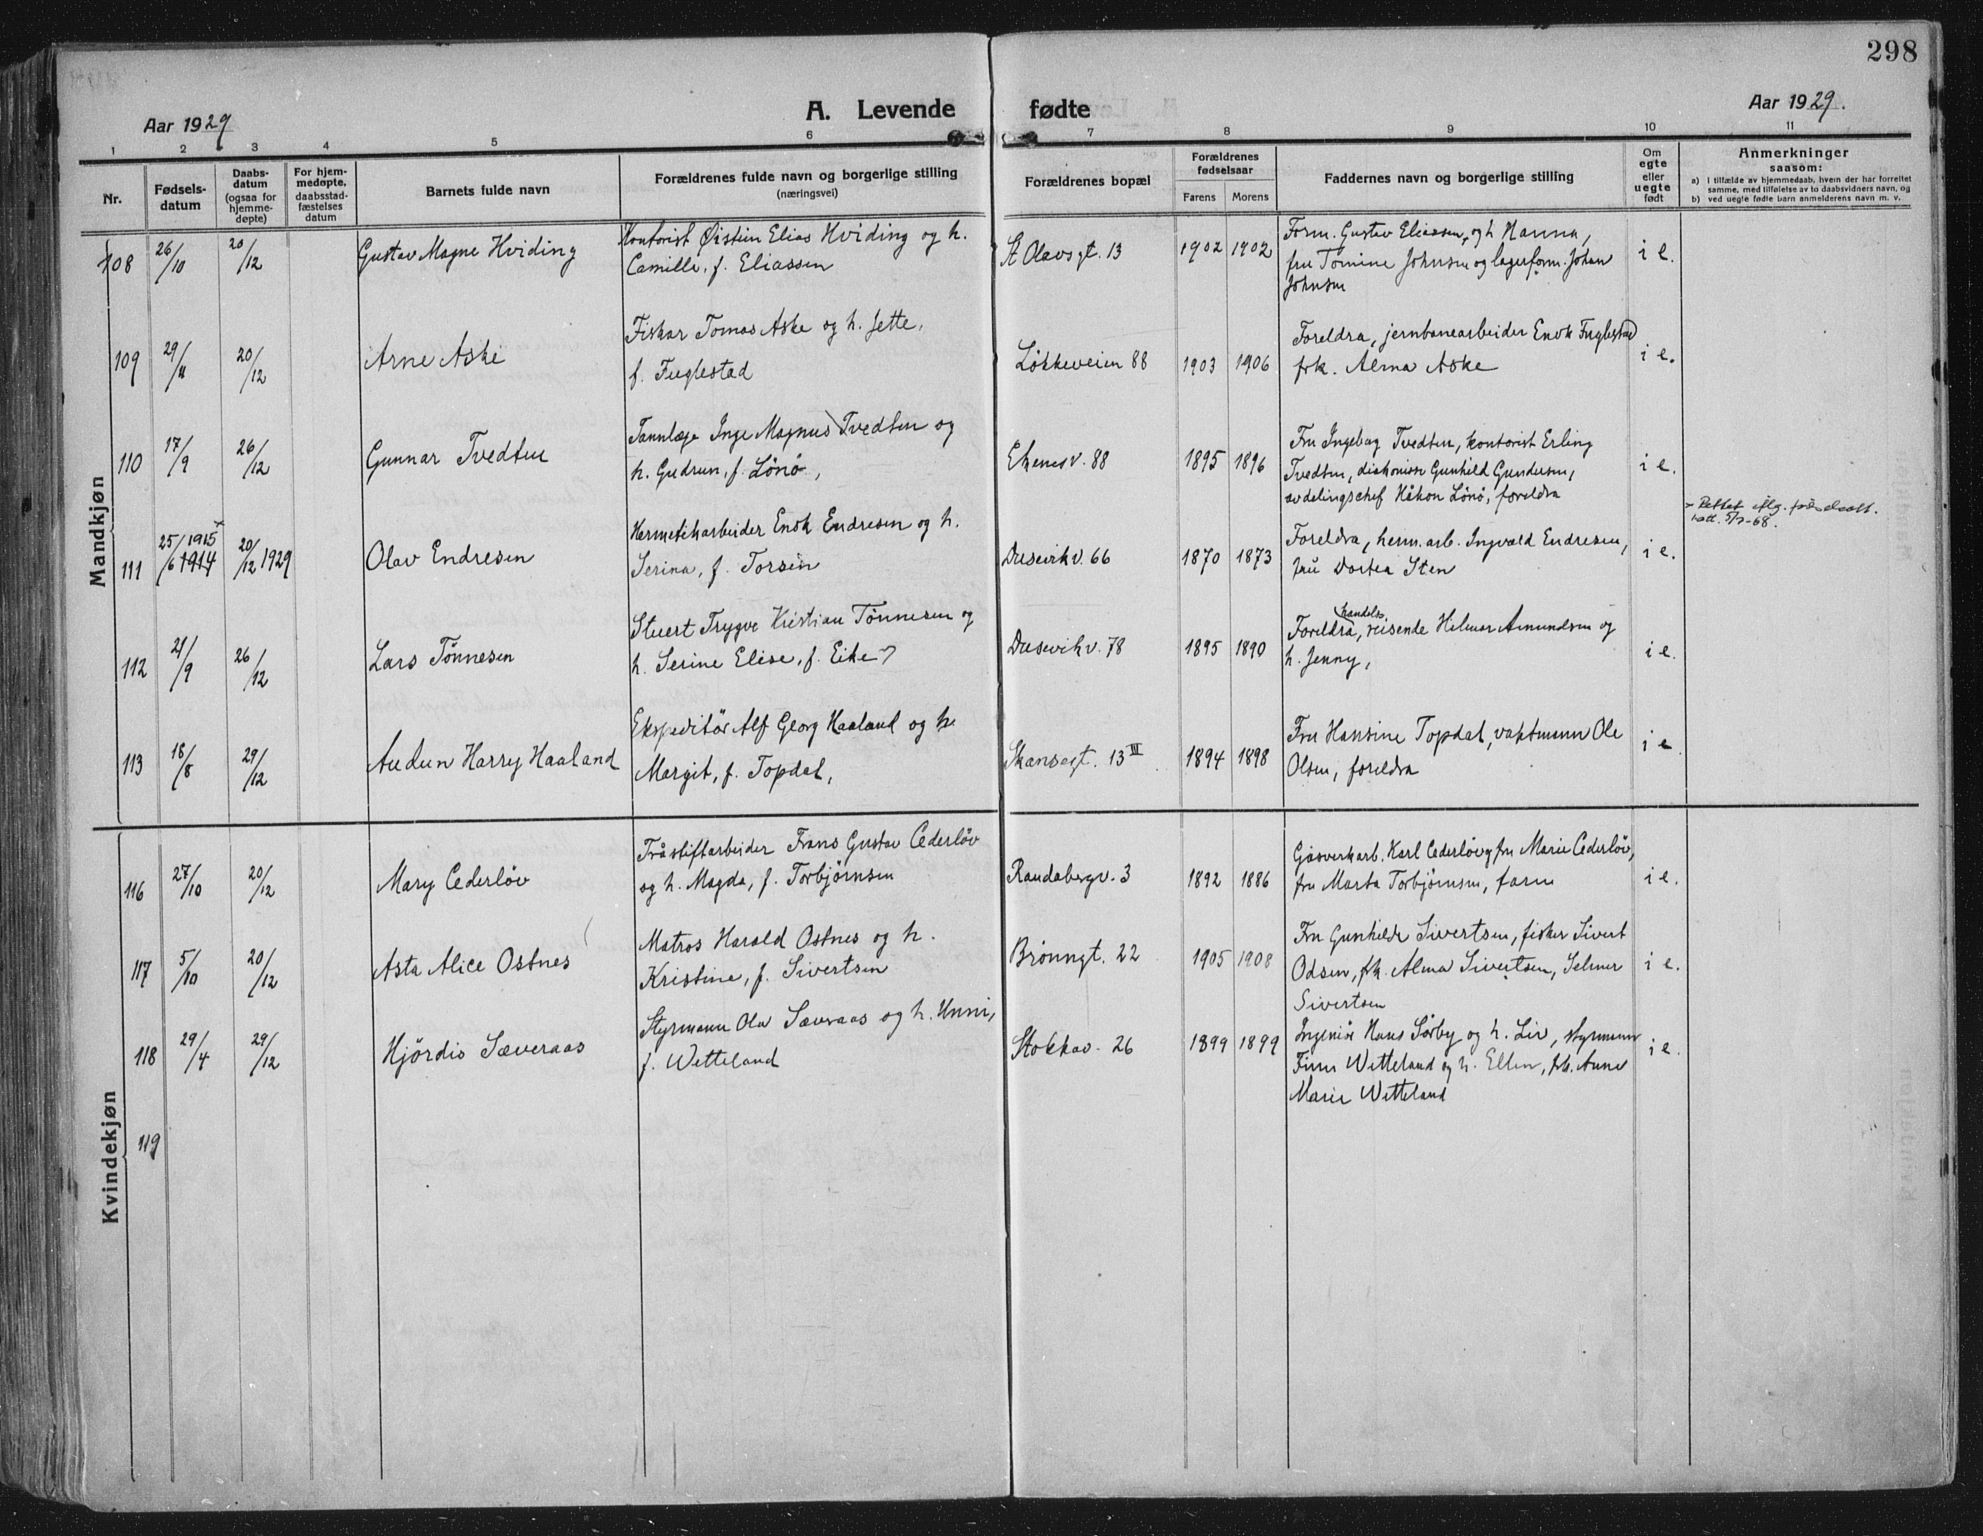 298
A. Levende fødte
Aar 1929
Aar 1929.
1 2 3 4 5 6 7 8 9 10 11
Nr.
Fødsels-
datum
Daabs-
datum
(ogsaa for
hjemme-
døpte)
For hjem-
medøpte,
daabsstad-
fæstelses
datum
Barnets fulde navn
Forældrenes fulde navn og borgerlige stilling
(næringsvei)
Forældrenes bopæl
Forældrenes
fødselsaar
Farens Morens
Faddernes navn og borgerlige stilling
Om
egte
eller
uegte
født
Anmerkninger
saasom:
a) i tilfælde av hjemmedaab, hvem der har forrettet
samme, med tilføielse av to daabsvidners navn, og
b) ved uegte fødte barn anmelderens navn m. v.
Mandkjøn
108 26/10 20/12 Gustav Magne Hviding
Kontorist Øistein Elias Hviding og h.
Camilla, f. Eliassen
St Olavsgt. 13 1902 1902
Form. Gustav Eliassen, og h Hanna,
fru Tomine Johnsen og lagerform. Johan
Johnsen
i e.
109 29/11 20/12 Arne Aske
Fiskar Tomas Aske og h. Jette,
f. Fuglestad
Løkkeveien 88 1903 1906
Foreldra, jernbanearbeider Enok Fuglestad
frk. Alma Aske
i e.
110 17/9 26/12 Gunnar Tvedten
Tannlæge Inge Magnus Tvedten og
h. Gudrun, f. Lönö,
Ekenesv. 88 1895 1896
Fru Ingeborg Tvedten, kontorist Erling
Tvedten, diakonisse Gunhild Gundersen,
avdelingschef Håkon Lönö, foreldra
i e.
111 25/6 1915 x 1914 20/12 1929 Olav Endresen
Hermetikarbeider Enok Endresen og h.
Serina, f. Torsen
Dusevikv. 66 1870 1873
Foreldra, herm. arb. Ingvald Endresen,
fru Dortea Sten
i e.
x Rettet iflg. fødselsatt.
datt. 5/7-68.
112 21/9 26/12 Lars Tönnesen
Stuert Trygve Kristian Tönnesen og
h. Serine Elise, f. Eike
Dusevikv. 78 1895 1890
Foreldra, handelsreisende Hilmar Amundsen og
h. Jenny,
i e.
113 18/8 29/12 Audun Harry Haaland
Ekspeditör Alf Georg Haaland og h
Margit, f. Topdal,
Skansegt. 13 III 1894 1898
Fru Hansine Topdal, vaktmann Ole
Olsen, foreldra
i e
Kvindekjøn
116 27/10 20/12 Mary Cederlöv
Tråstiftarbeider Frans Gustav Cederlöv
og h. Magda, f. Torbjörnsen
Randabergv. 3 1892 1886
Gasverkarb. Karl Cederlöv og fru Marie Cederlöv,
fru Marta Torbjörnsen, faren
i e.
117 5/10 20/12 Asta Alice Ostnes
Matros Harald Ostnes og h.
Kristine, f. Sivertsen
Brönngt. 22 1905 1908
Fru Gunhilde Sivertsen, fisker Sivert
Odsen, frk. Alma Sivertsen, Selmer
Sivertsen
i e.
118 29/4 29/12 Hjördis Sæveraas
Styrmann Ola Sæveraas og h. Unni,
f. Wetteland
Stokkav. 26 1899 1899
Ingeniör Hans Sörby og h. Liv, styrmann
Finn Wetteland og h. Ellen, frk. Anne
Marie Wetteland
i e.
119